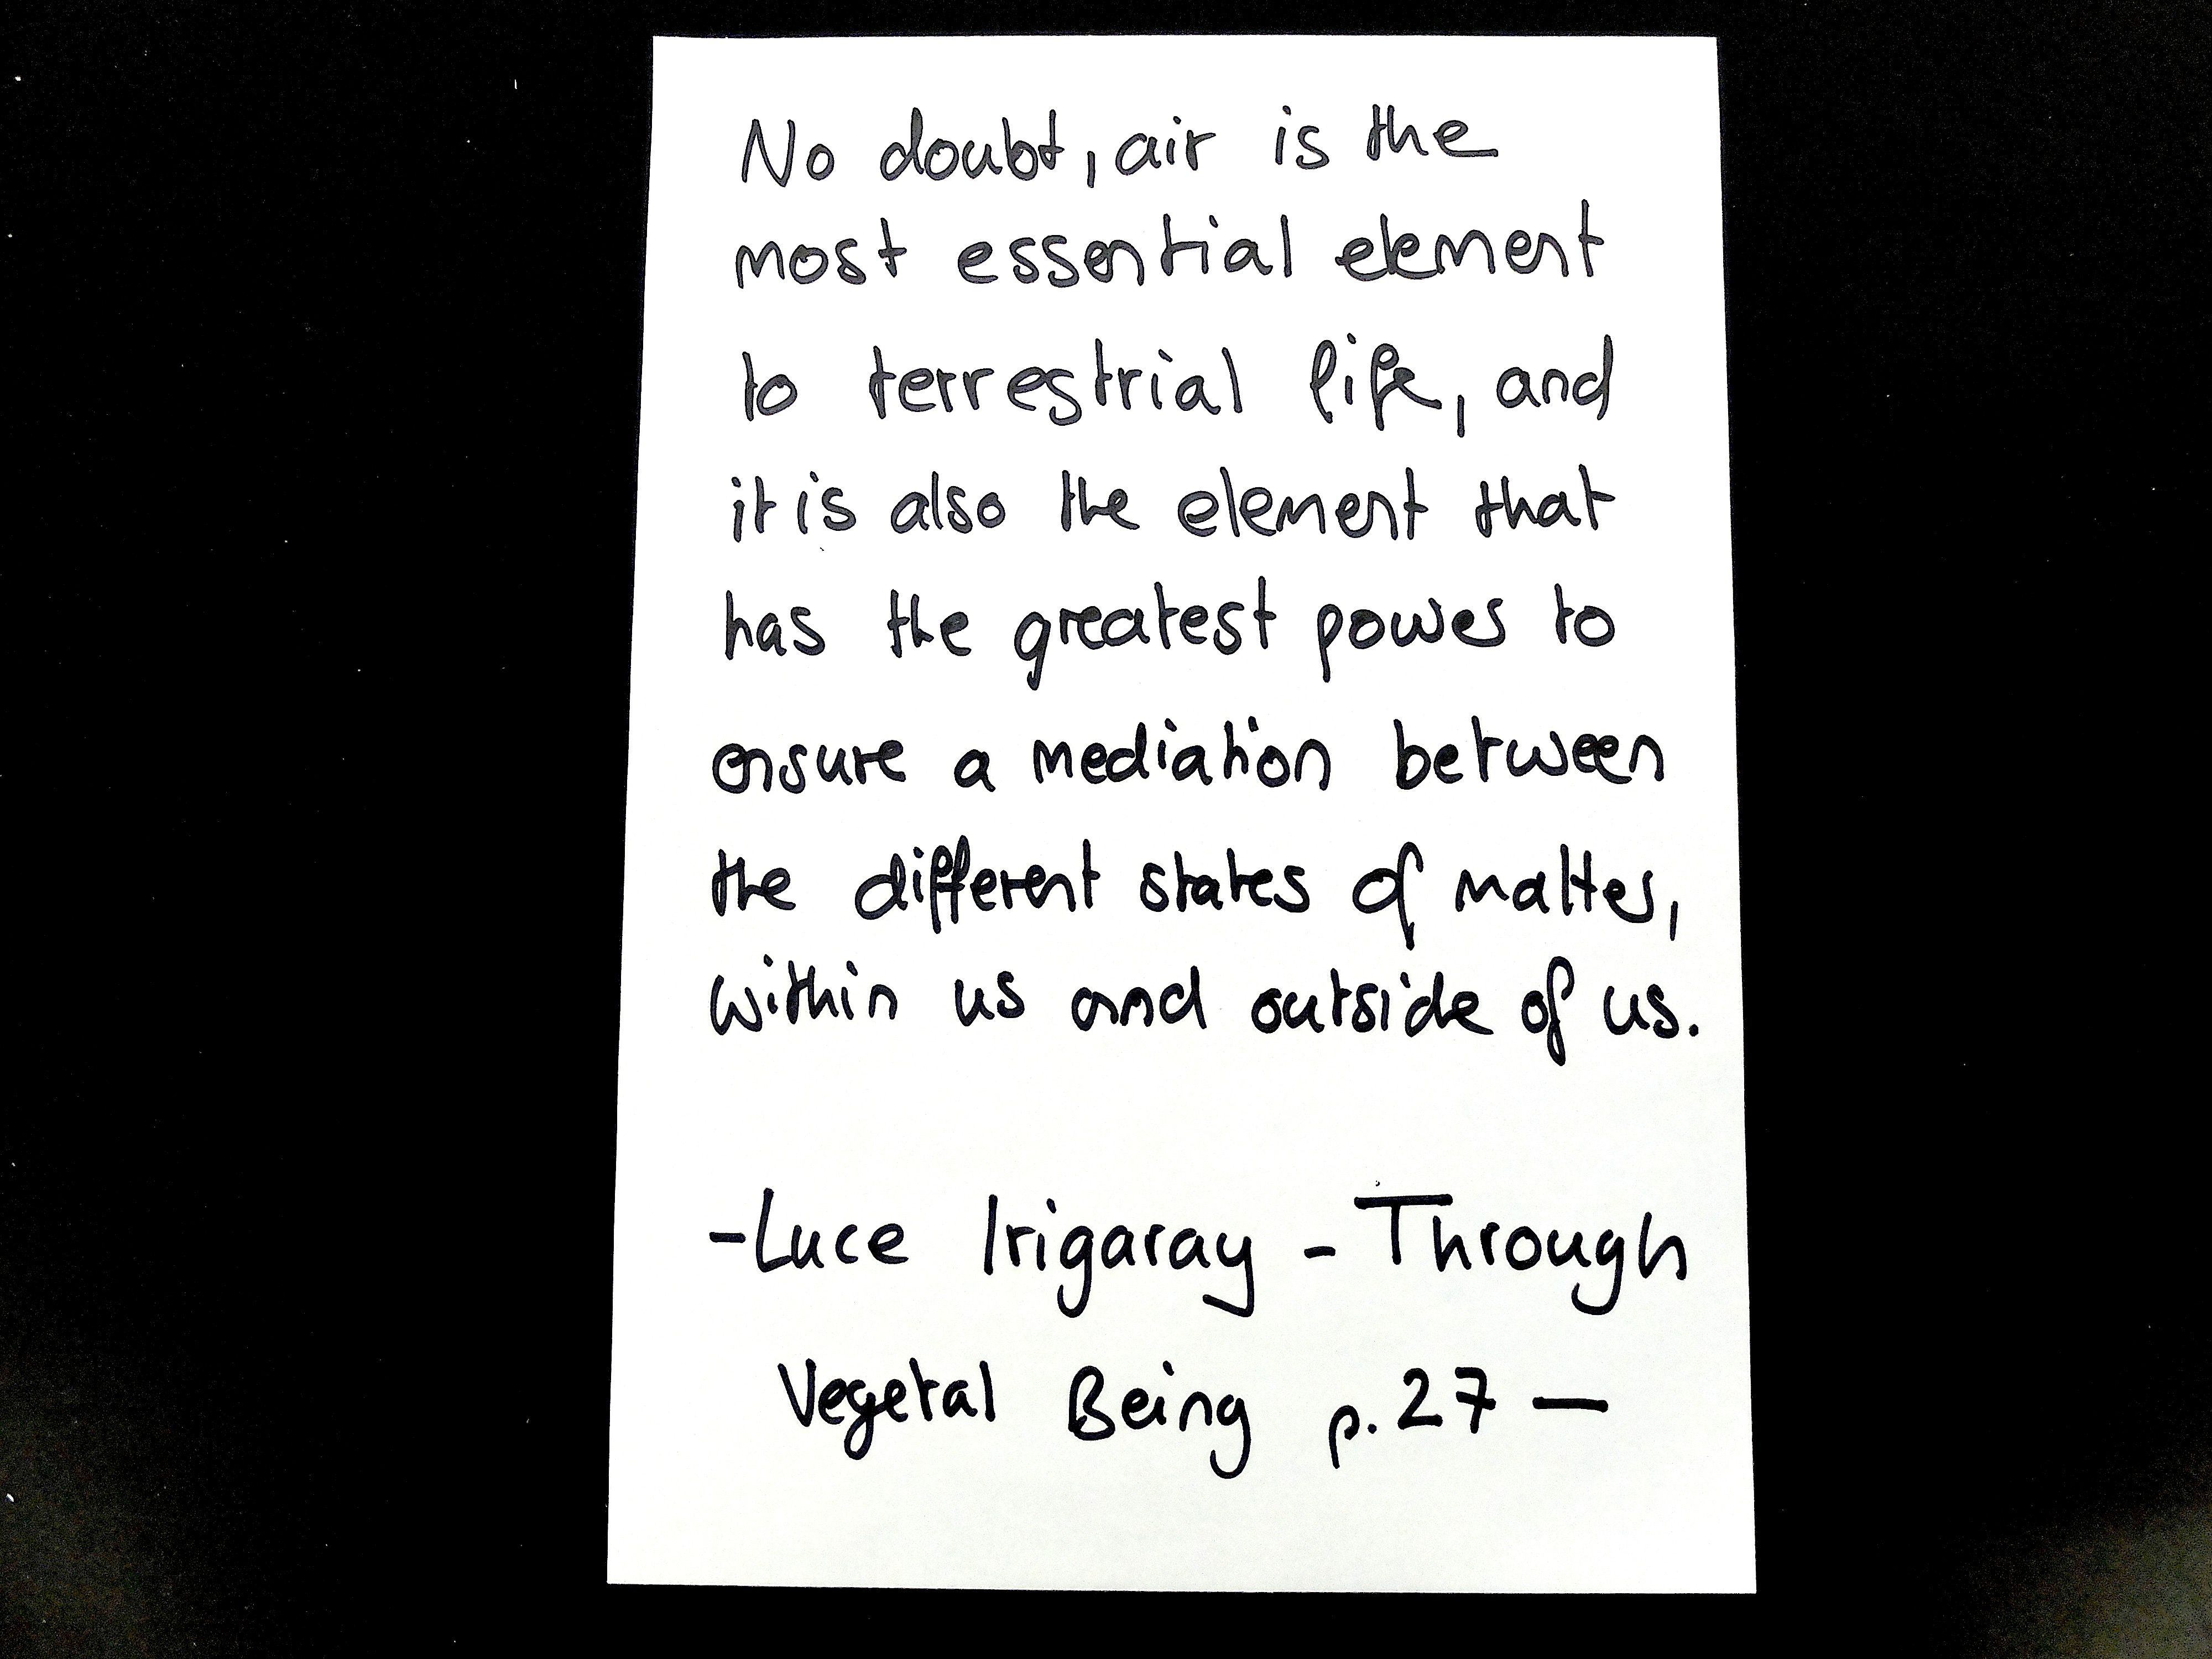 No doubt, air is the
most essential element
to terrestrial life, and
it is also the element that
has the greatest power to
ensure a mediation between
the different states of matter,
within us and outside of us.
-Luce Irigaray - Through
Vegetal Being p.27 —